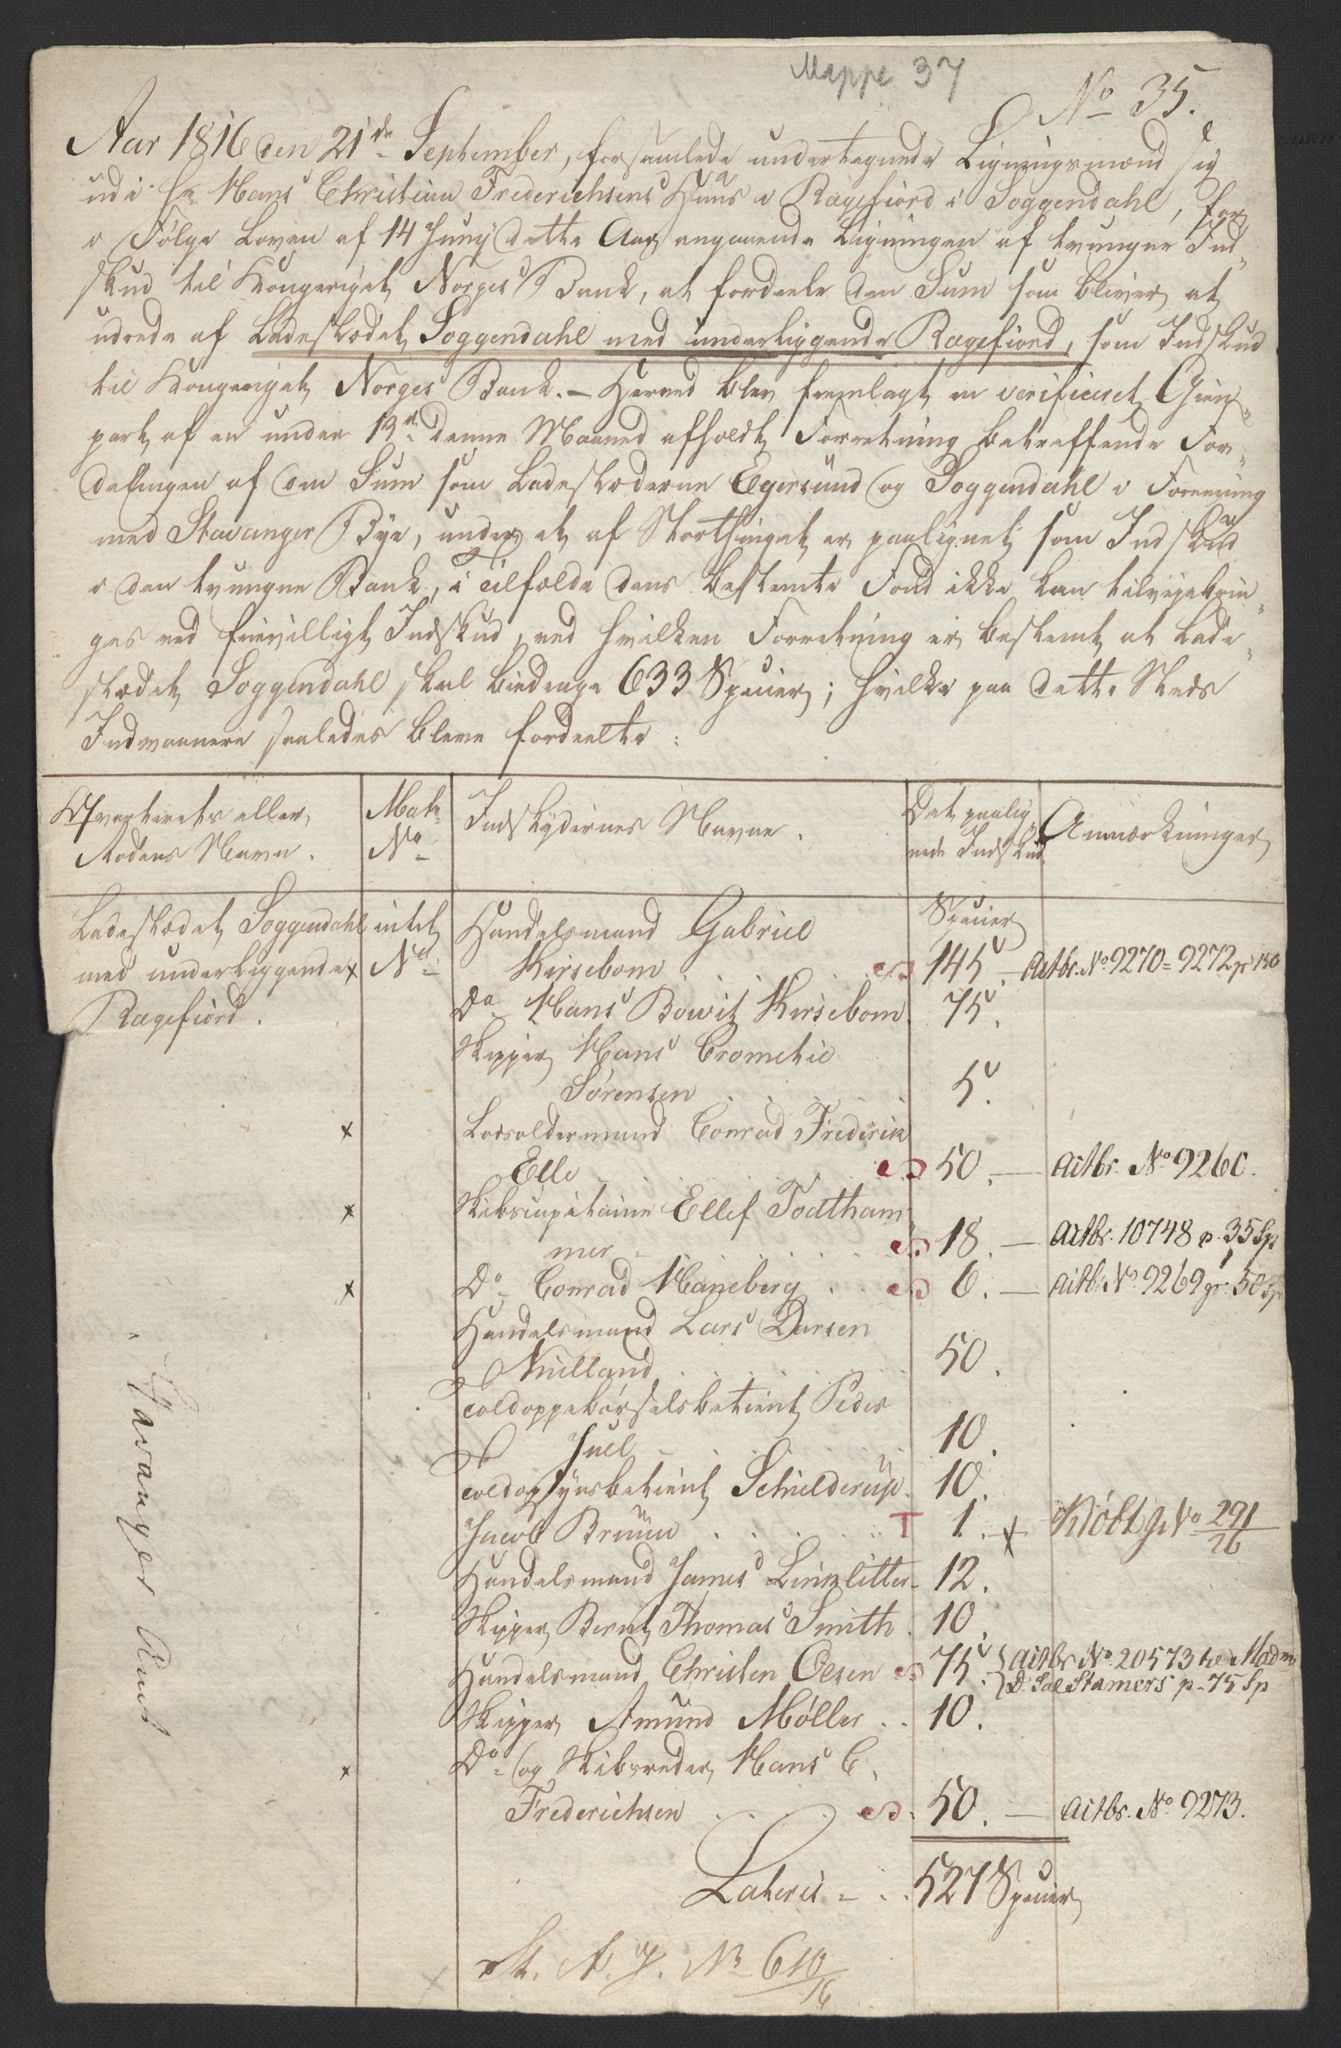 Mappe 37
No 35.
Aar 1816 den 21de September, forsamlede undertegnede Ligningsmænd sig
udi Hr Hans Christian Frederichsens Huus i Rægefiord i Soggendahl, for
i Følge Loven af 14 Juny dette Aar angaaende Ligningen af tvungne Ind-
skud til Kongeriget Norges Bank, at fordeele den Sum som bliver at
udrede af Ladestædet Soggendahl med underliggende Rægefiord, som Indskud
til Kongeriget Norges Bank. - Herved blev fremlagt en verificeret Gien-
part af en under 19de denne Maaned afholdt Forretning betreffende For-
delingen af den Sum som Ladestæderne Egersund og Soggendahl i Forening
med Stavanger Bye, under et af Storthinget er paalignet som Indskud
i den tvungne Bank, i Tilfælde dens bestemte Fond ikke kan tilveiebrin-
ges ved frievilligt Indskud, ved hvilken Forretning er bestemt at Lade-
stædet Soggendahl skal biedrage 633 Specier; hvilke paa dette Steds
Indvaanere saaledes bleve fordeelte:
Qvarterets eller Rodens Navn. Matr No Indskydernes Navne. Det paalig- Anmærkninger
nede Indskud
Ladestædet Soggendahl intet Handelsmand Gabriel Specier
med underliggende x No Kirsebom S 145. - Actbr. No 9270 = 9272 p 150
Rægefiord. Do Hans Bowitz Kirsebom 75.
Skipper Hans Cromehie
Sørensen 5.
x Lodsoldermand Conrad Frederik
Elle S 50. - Actbr. No 9260.
x Skibscapitaine Ellef Todtham
mer S 18. - Actbr. 10748 p. 35 Sp
x Do Conrad Haneberg S 6. - Actbr. No 9269 p. 50 Sp
Handelsmand Lars Larsen
Nulland 50.
Toldoppebørselsbetient Peder
Juel 10.
Toldopsynsbetient Schielderup 10.
Jacob Bruun T 1. x Kiøbt p No 291/16
Handelsmand James Linklitter 12.
Skipper Bernt Thomas Smith 10.
Handelsmand Christen Olsen S 75. Actbr No 20573 to Madm
D. Sal Stamers p. 75 Sp
Skipper Amund Møller 10.
x Do og Skibsreder Hans C.
Frederichsen S 50. - Actbr. No 9273.
Lateris 527 Specier
St. A. J. No 610/16
Stavanger Amt